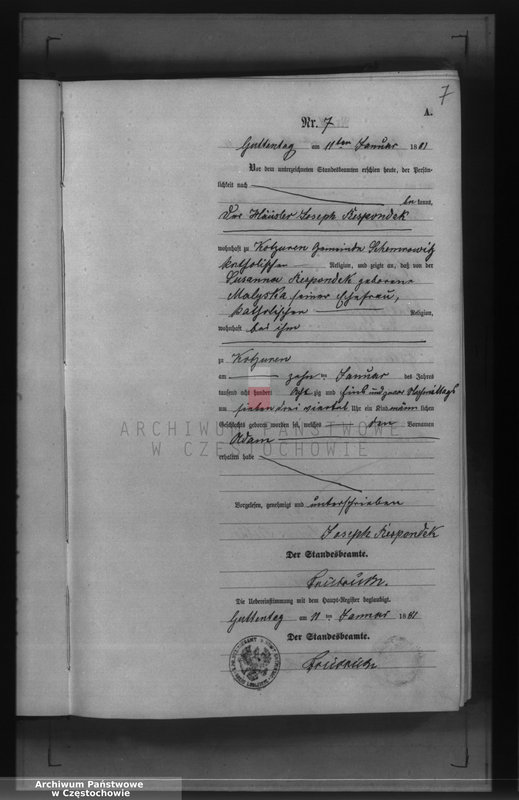 7
A.
Nr. 7
Guttentag am 11ten Januar 1881
Vor dem unterzeichneten Standesbeamten erschien heute, der Persön-
lichkeit nach
be kannt,
Der Häusler Joseph Respondek
wohnhaft zu Kotzuren Gemeinde Schemrowitz
katholischer Religion, und zeigte an, daß von der
Susanna Respondek geborene
Malyska seiner Ehefrau,
katholischen Religion,
wohnhaft bei ihm
zu Kotzuren
am zehn ten Januar des Jahres
tausend acht hundert Acht zig und Eins und zwar Nachmittags
um sieben drei viertel Uhr ein Kind männlichen
Geschlechts geboren worden ist, welches den Vornamen
Adam
erhalten habe
Vorgelesen, genehmigt und unterschrieben
Joseph Respondek
Der Standesbeamte.
Die Uebereinstimmung mit dem Haupt-Register beglaubigt.
Guttentag am 11 ten Januar 1881
Der Standesbeamte.
ARCHIWUM PAŃSTWOWE
W CZĘSTOCHOWIE
Archiwum Państwowe
w Częstochowie